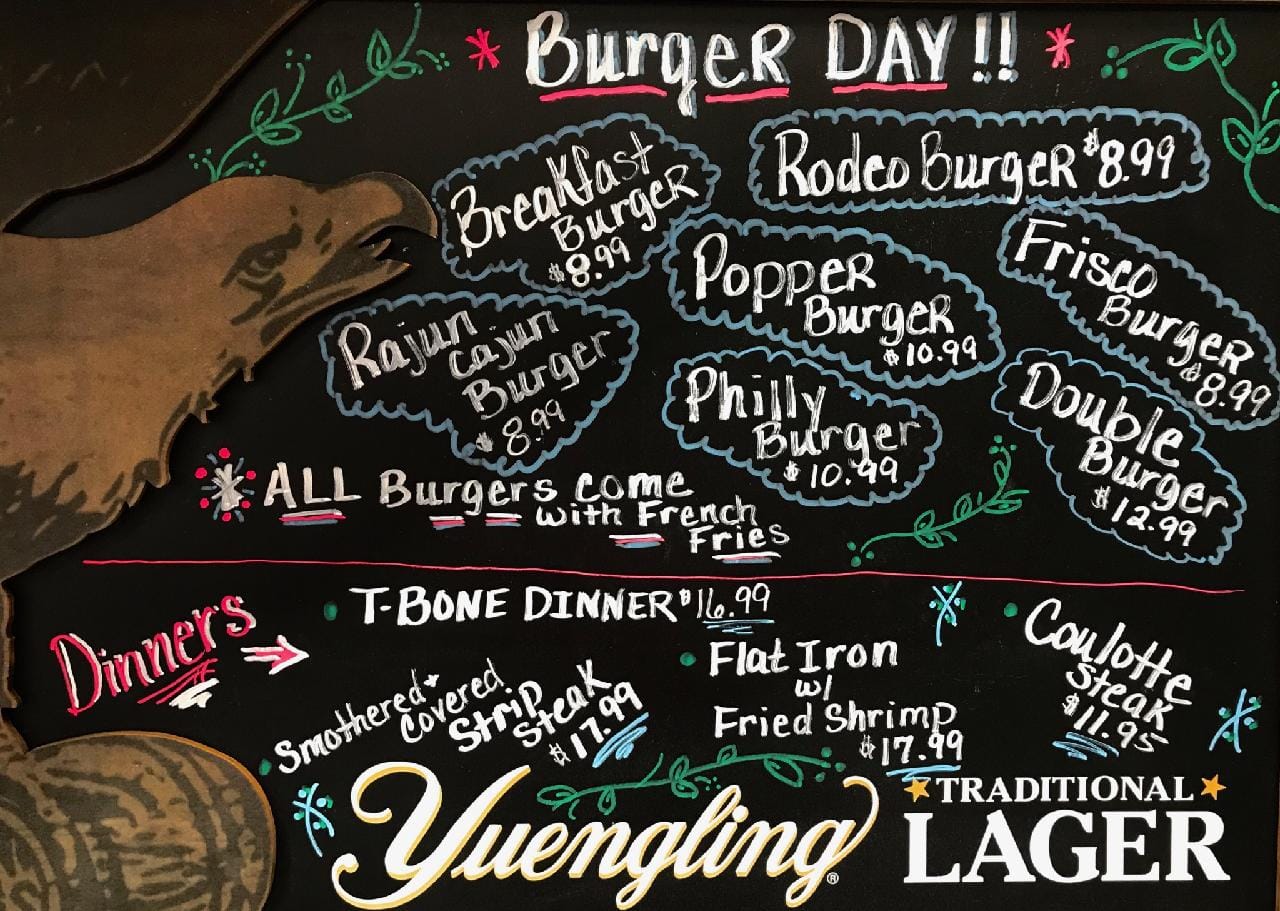 * Burger DAY!! *
Breakfast
Burger
$8.99
Rodeo Burger $8.99
Popper
Burger
$10.99
Frisco
Burger
$8.99
Rajun
Cajun
Burger
$8.99
Philly
Burger
$10.99
Double
Burger
$12.99
* ALL Burgers come
with French
Fries
Dinners →
• T-BONE DINNER $16.99
• Smothered +
Covered
Strip
Steak
$17.99
• Flat Iron
w/
Fried Shrimp
$17.99
• Coulotte
Steak
$11.95
Yuengling®
TRADITIONAL
LAGER